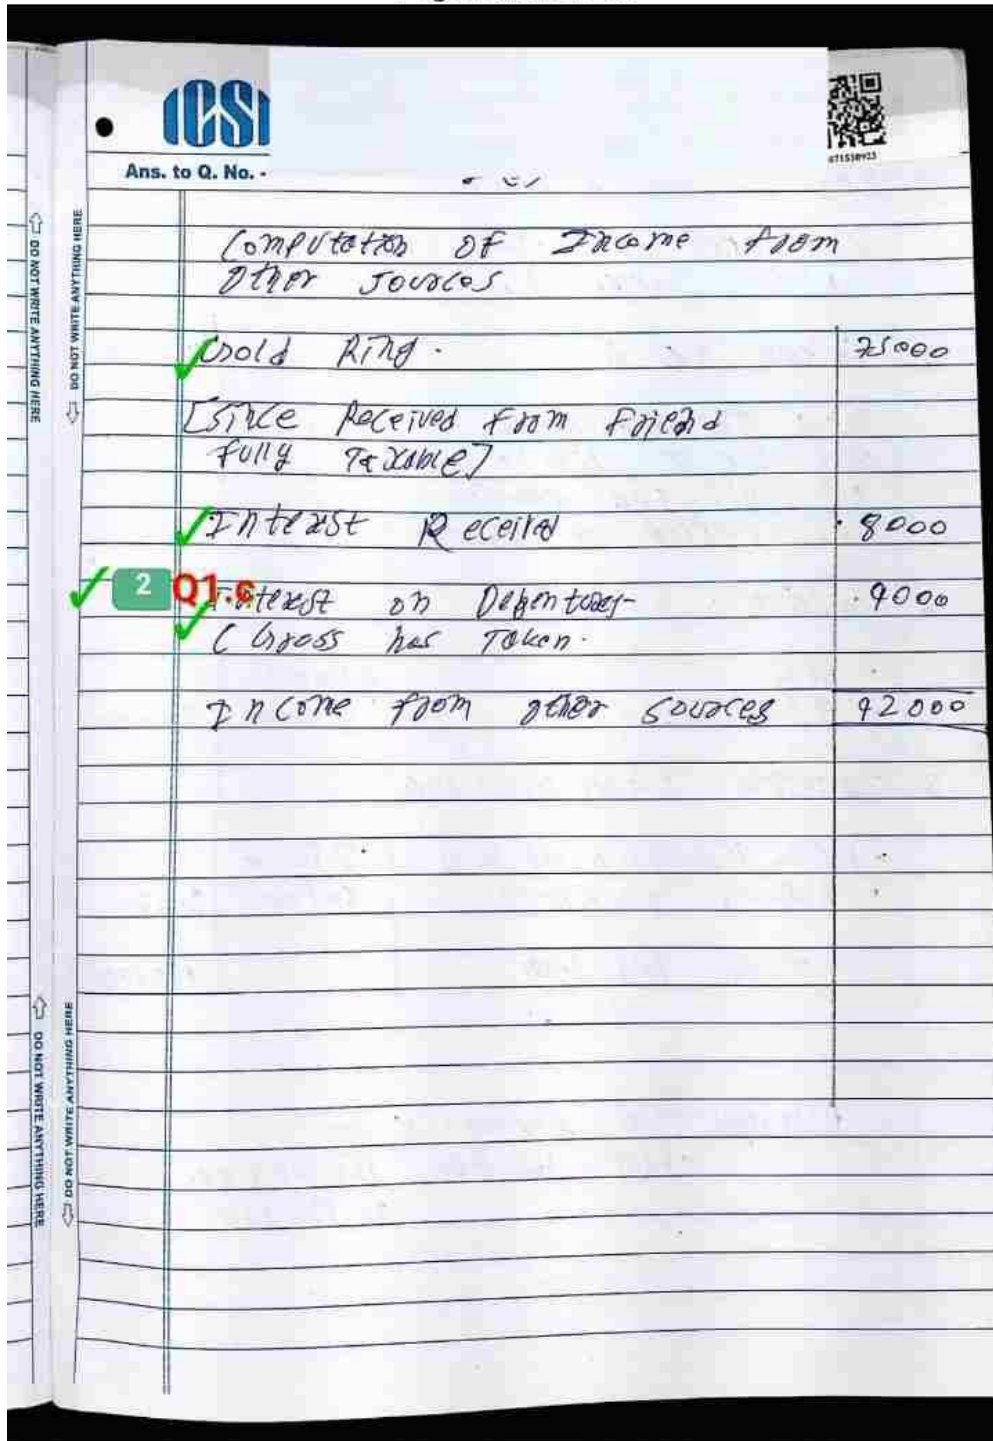 ICSI
071538923
Ans. to Q. No. -
DO NOT WRITE ANYTHING HERE
DO NOT WRITE ANYTHING HERE
Computation of Income from
Other Sources
Gold Ring. 75000
[Since Received from Friend
fully Taxable]
Interest Received 8000
2 Q1.c
Interest on Debentures 9000
( Gross has Taken.
Income from other sources 92000
DO NOT WRITE ANYTHING HERE
DO NOT WRITE ANYTHING HERE